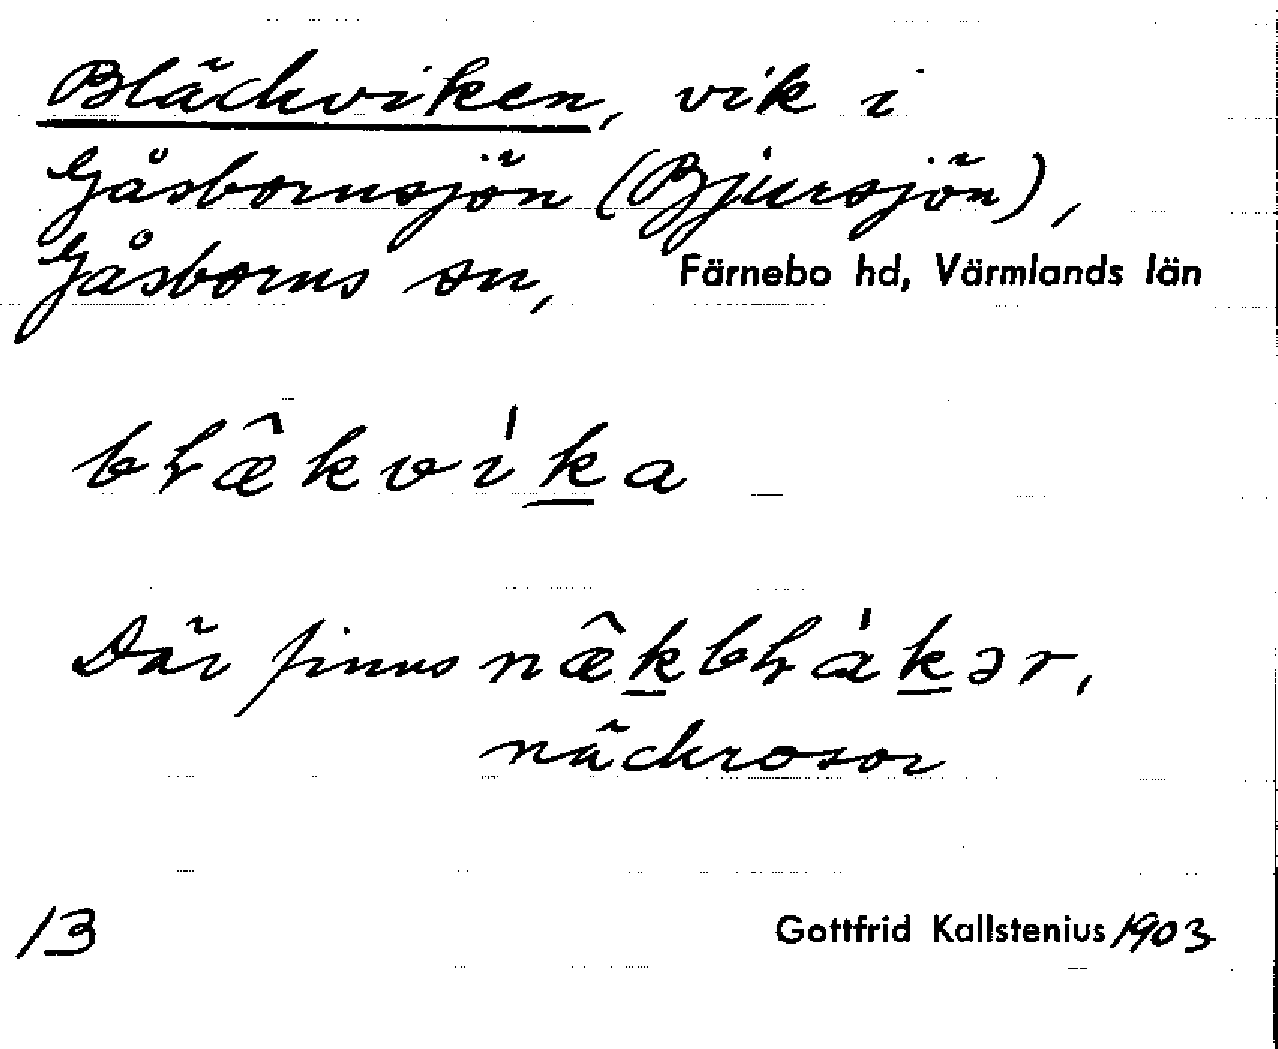 Bläckviken, vik i
Gåsbornsjön (Bjursjön),
Gåsborns sn, Färnebo hd, Värmlands län
bɫæ̂kvìḵa
Där finns næ̂ḵbɫàḵər,
näckrosor
13 Gottfrid Kallstenius 1903